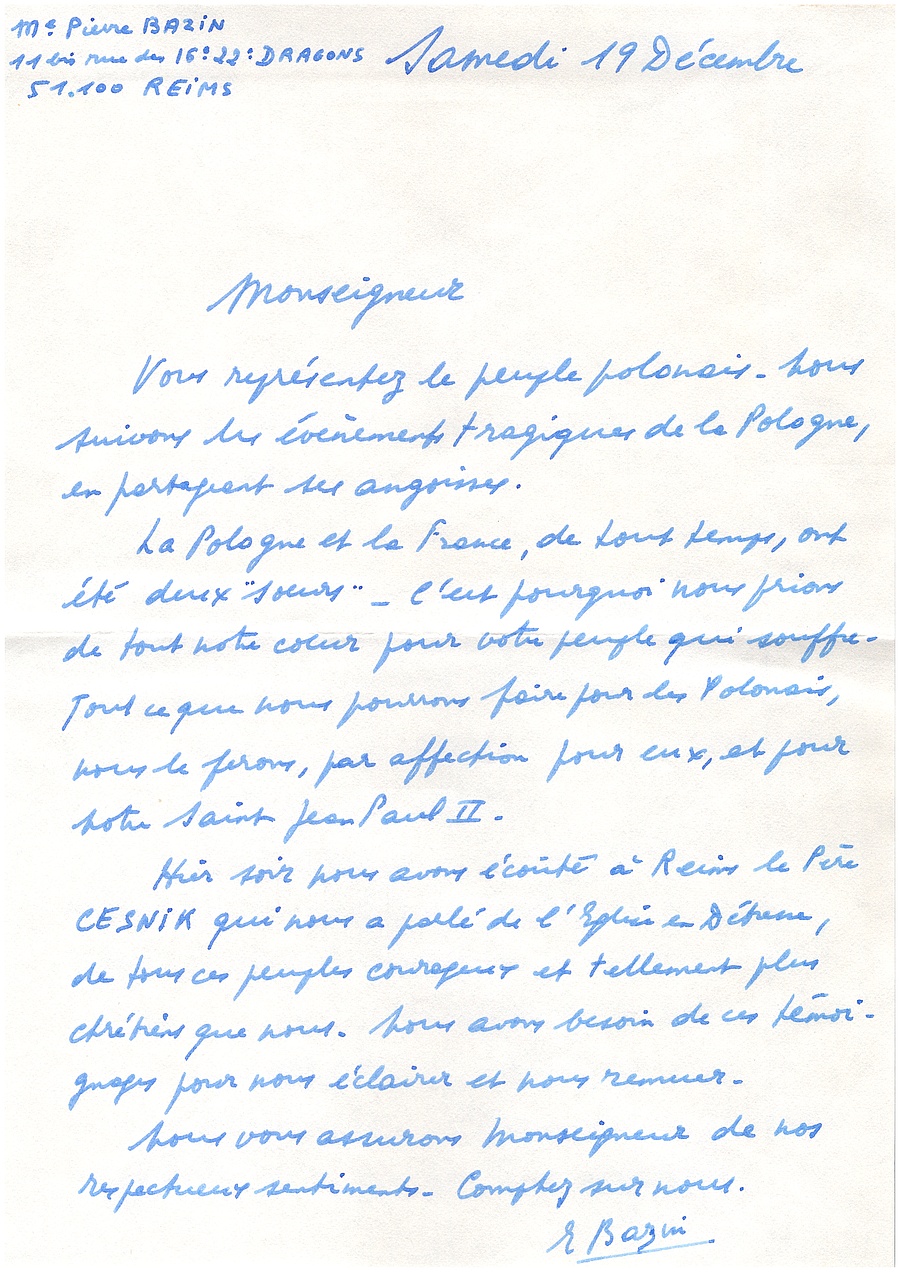 Me Pierre BAZIN
11 bis rue des 16e 22e DRAGONS
51.100 REIMS
Samedi 19 Décembre
Monseigneur
Vous représentez le peuple polonais - Nous
suivons les évènements tragiques de la Pologne,
en partageant ses angoisses.
La Pologne et la France, de tout temps, ont
été deux "soeurs" - C'est pourquoi nous prions
de tout notre coeur pour votre peuple qui souffre -
Tout ce que nous pourrons faire pour les Polonais,
nous le ferons, par affection pour eux, et pour
notre Saint Jean Paul II.
Hier soir nous avons écouté à Reims le Père
CESNIK qui nous a parlé de l'Eglise en Détresse,
de tous ces peuples courageux et tellement plus
chrétiens que nous. Nous avons besoin de ces témoi-
gnages pour nous éclairer et nous remuer -
Nous vous assurons Monseigneur de nos
respectueux sentiments - Comptez sur nous.
E Bazin